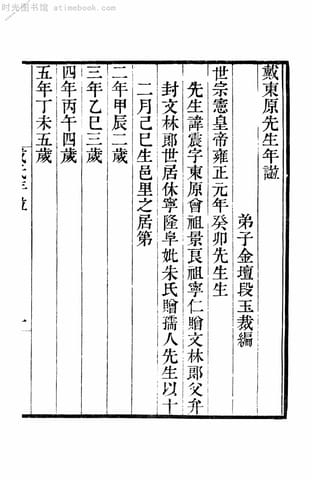 时光图书馆 · atimebook.com
戴東原先生年譜
弟子金壇段玉裁編
世宗憲皇帝雍正元年癸卯先生生
先生諱震字東原曾祖景良祖寧仁贈文林郎父弁
封文林郎世居休寧隆阜妣朱氏贈孺人先生以十
二月己巳生邑里之居第
二年甲辰二歲
三年乙巳三歲
四年丙午四歲
五年丁未五歲